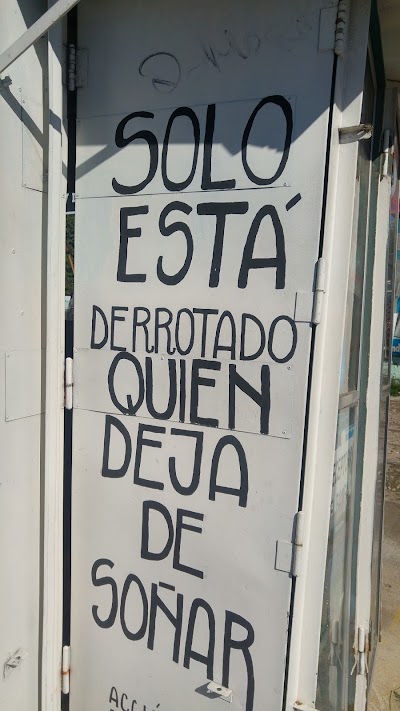 SOLO
ESTÁ
DERROTADO
QUIEN
DEJA
DE
SOÑAR